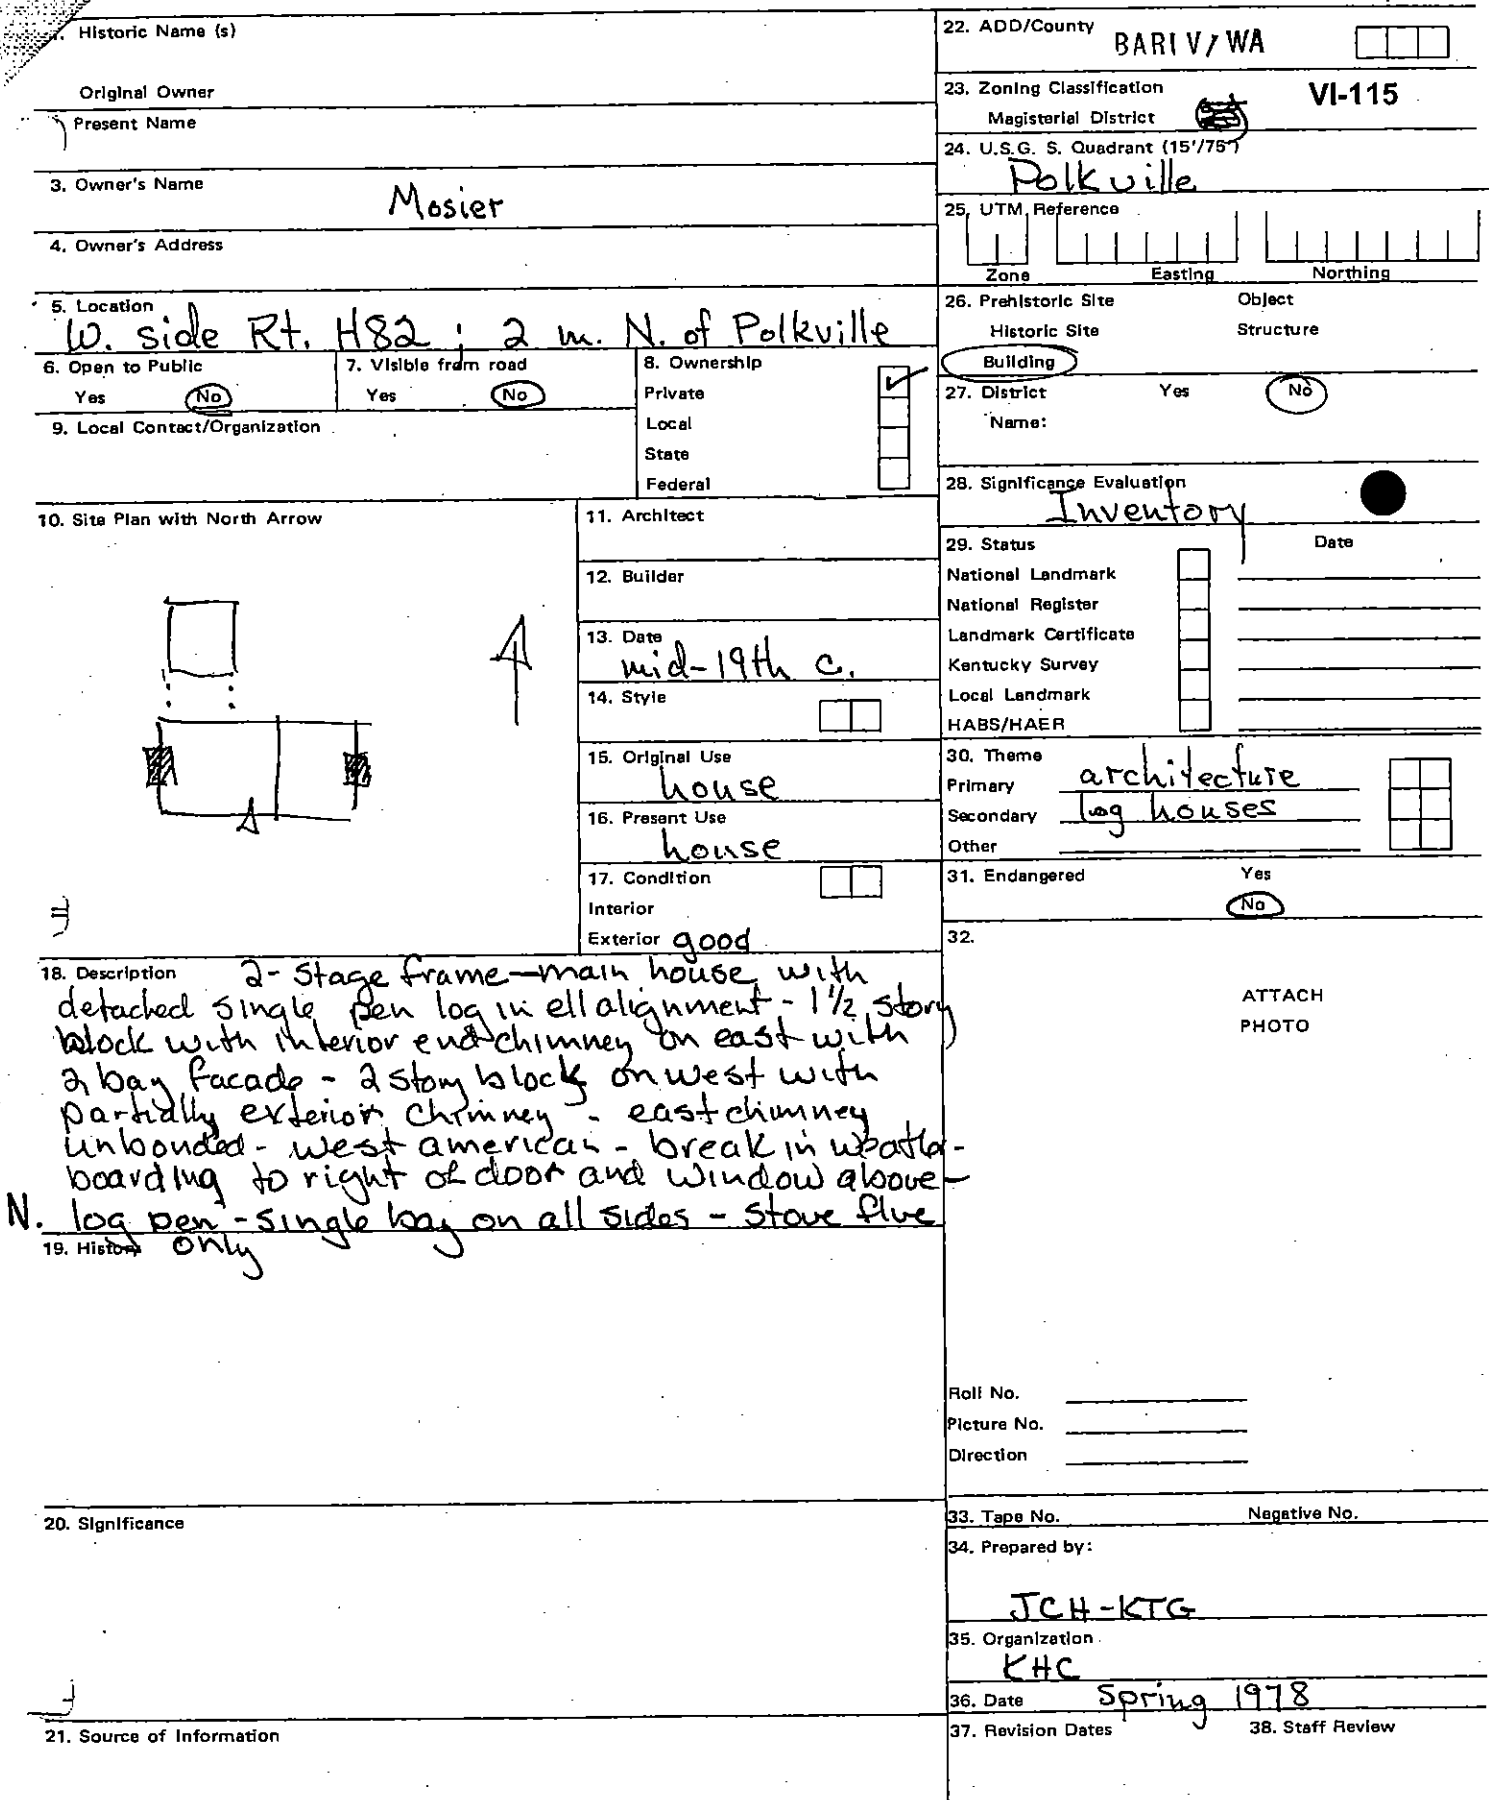 1. Historic Name (s)
Original Owner
Present Name
3. Owner's Name
Mosier
4. Owner's Address
5. Location
W. side Rt. H82 ; 2 m. N. of Polkville
6. Open to Public
Yes No
7. Visible from road
Yes No
8. Ownership
Private
Local
State
Federal
9. Local Contact/Organization
10. Site Plan with North Arrow
11. Architect
12. Builder
13. Date
mid-19th c.
14. Style
15. Original Use
house
16. Present Use
house
17. Condition
Interior
Exterior good
18. Description 2-stage frame—main house with
detached single pen log in ell alignment - 1 1/2 story
block with interior end chimney on east with
2 bay facade - 2 story block on west with
partially exterior chimney - east chimney
unbonded - west american - break in weather-
boarding to right of door and window above -
N. log pen - single bay on all sides - stove flue
only
19. History
20. Significance
21. Source of Information
22. ADD/County BARI V/WA
23. Zoning Classification VI-115
Magisterial District
24. U.S.G. S. Quadrant (15'/75")
Polkville
25. UTM Reference
Zone Easting Northing
26. Prehistoric Site Object
Historic Site Structure
Building
27. District Yes No
Name:
28. Significance Evaluation
Inventory
29. Status Date
National Landmark
National Register
Landmark Certificate
Kentucky Survey
Local Landmark
HABS/HAER
30. Theme
Primary architecture
Secondary log houses
Other
31. Endangered Yes
No
32.
ATTACH
PHOTO
Roll No.
Picture No.
Direction
33. Tape No. Negative No.
34. Prepared by:
JCH-KTG
35. Organization
KHC
36. Date Spring 1978
37. Revision Dates 38. Staff Review